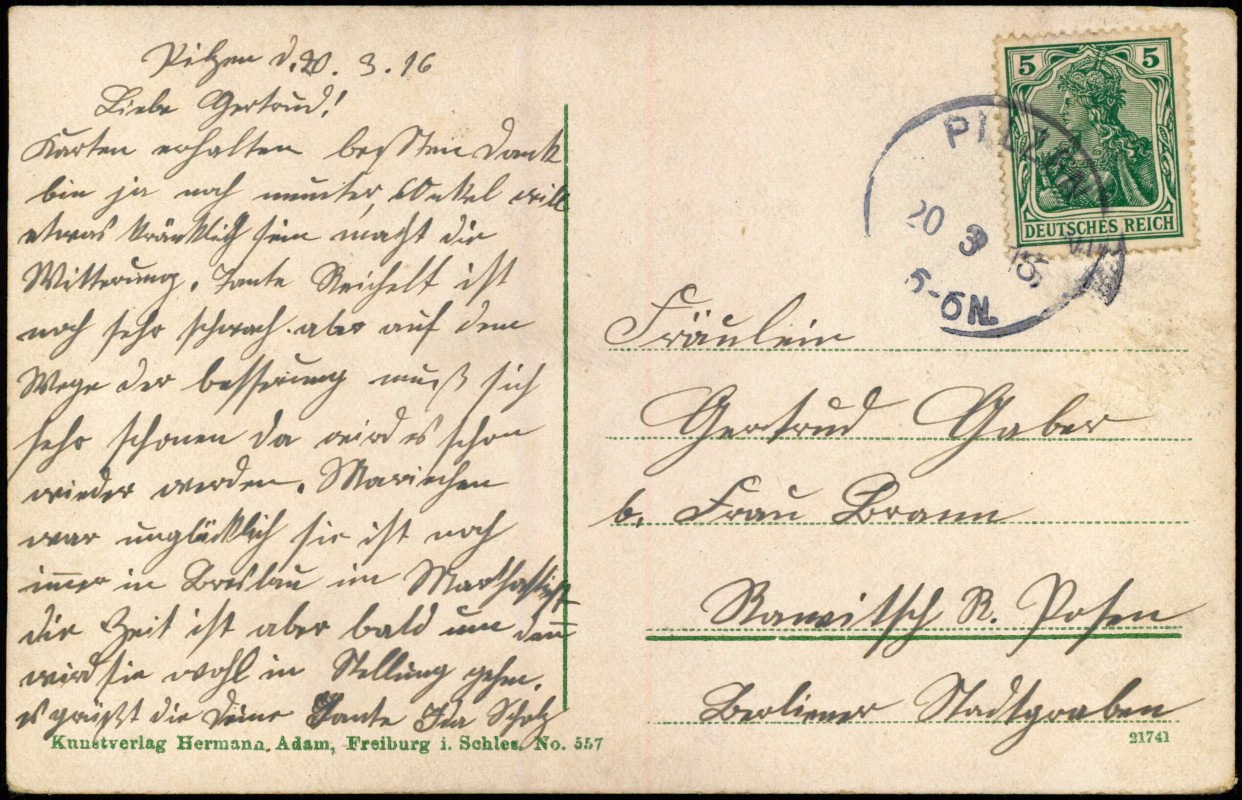 Pilzen d. 20. 3. 16
Liebe Gertrud!
Karten erhalten beßten Dank
bin ja noch munter, Onkel will
etwas kränklich sein macht die
Witterung. Tante Reichelt ist
noch sehr schwach aber auf dem
Wege der besserung muß sich
sehr schonen da wird es schon
wieder werden. Mariechen
war unglücklich sie ist noch
immer in Breslau im Marthastift
die Zeit ist aber bald um dann
wird sie wohl in Stellung gehen.
es grüßt die Deine Tante Ida Scholz
Kunstverlag Hermann Adam, Freiburg i. Schles. No. 557
5 5
DEUTSCHES REICH
PILZEN
20 3 16
5-6N.
Fräulein
Gertrud Gaber
b. Frau Brann
Rawitsch R. Posen
Berliner Stadtgraben
21741